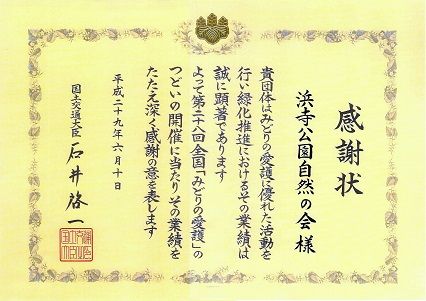 感謝状
浜寺公園自然の会様
貴団体はみどりの愛護に優れた活動を
行い緑化推進におけるその業績は
誠に顕著であります
よって第二十八回全国「みどりの愛護」の
つどいの開催に当たりその業績を
たたえ深く感謝の意を表します
平成二十九年六月十日
国土交通大臣 石井啓一